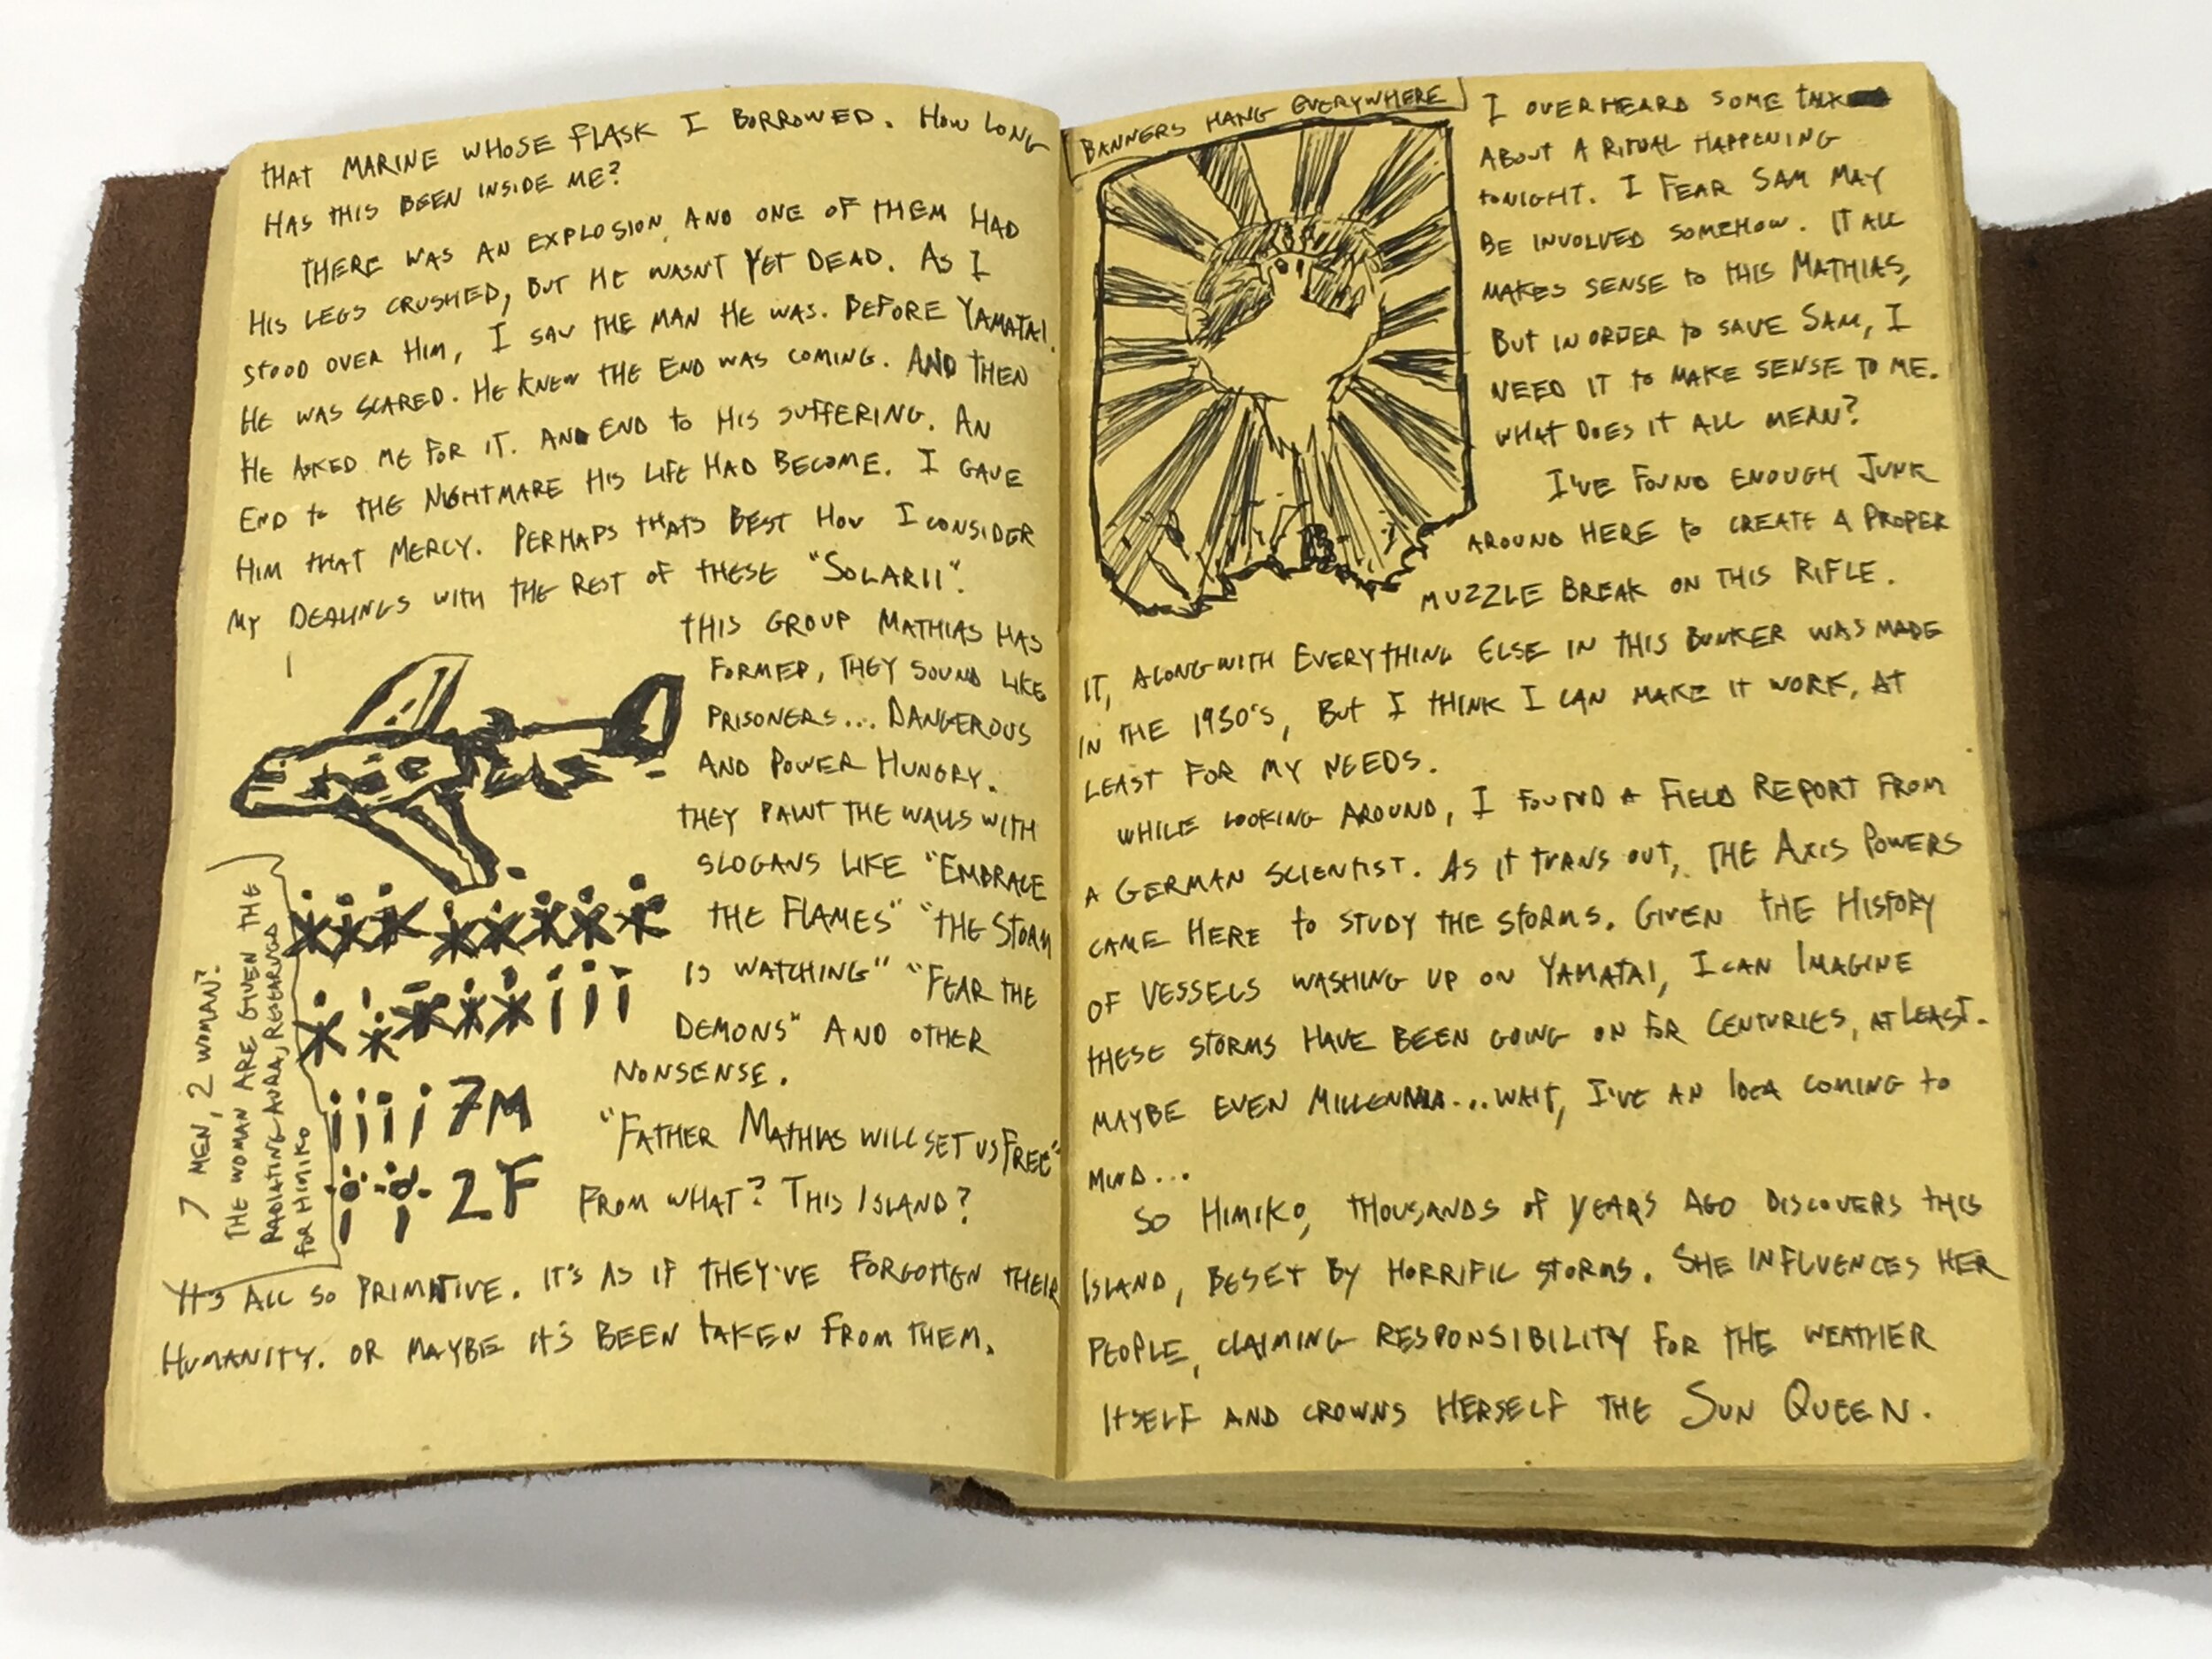 THAT MARINE WHOSE FLASK I BORROWED. HOW LONG
HAS THIS BEEN INSIDE ME?
THERE WAS AN EXPLOSION, AND ONE OF THEM HAD
HIS LEGS CRUSHED, BUT HE WASN'T YET DEAD. AS I
STOOD OVER HIM, I SAW THE MAN HE WAS. BEFORE YAMATAI.
HE WAS SCARED. HE KNEW THE END WAS COMING. AND THEN
HE ASKED ME FOR IT. AND END TO HIS SUFFERING. AN
END TO THE NIGHTMARE HIS LIFE HAD BECOME. I GAVE
HIM THAT MERCY. PERHAPS THATS BEST HOW I CONSIDER
MY DEALINGS WITH THE REST OF THESE "SOLARII".
THIS GROUP MATHIAS HAS
FORMED, THEY SOUND LIKE
PRISONERS... DANGEROUS
AND POWER HUNGRY.
THEY PAINT THE WALLS WITH
SLOGANS LIKE "EMBRACE
THE FLAMES" "THE STORM
IS WATCHING" "FEAR THE
DEMONS" AND OTHER
NONSENSE.
"FATHER MATHIAS WILL SET US FREE"
FROM WHAT? THIS ISLAND?
7M
2F
7 MEN, 2 WOMAN?
THE WOMAN ARE GIVEN THE
RADIATING AURA, RESERVED
FOR HIMIKO
IT'S ALL SO PRIMITIVE. IT'S AS IF THEY'VE FORGOTTEN THEIR
HUMANITY. OR MAYBE IT'S BEEN TAKEN FROM THEM.
BANNERS HANG EVERYWHERE
I OVERHEARD SOME TALK
ABOUT A RITUAL HAPPENING
TONIGHT. I FEAR SAM MAY
BE INVOLVED SOMEHOW. IT ALL
MAKES SENSE TO THIS MATHIAS,
BUT IN ORDER TO SAVE SAM, I
NEED IT TO MAKE SENSE TO ME.
WHAT DOES IT ALL MEAN?
I'VE FOUND ENOUGH JUNK
AROUND HERE TO CREATE A PROPER
MUZZLE BREAK ON THIS RIFLE.
IT, ALONG WITH EVERYTHING ELSE IN THIS BUNKER WAS MADE
IN THE 1930'S, BUT I THINK I CAN MAKE IT WORK, AT
LEAST FOR MY NEEDS.
WHILE LOOKING AROUND, I FOUND A FIELD REPORT FROM
A GERMAN SCIENTIST. AS IT TURNS OUT, THE AXIS POWERS
CAME HERE TO STUDY THE STORMS. GIVEN THE HISTORY
OF VESSELS WASHING UP ON YAMATAI, I CAN IMAGINE
THESE STORMS HAVE BEEN GOING ON FOR CENTURIES, AT LEAST.
MAYBE EVEN MILLENNIA... WAIT, I'VE AN IDEA COMING TO
MIND...
SO HIMIKO, THOUSANDS OF YEARS AGO DISCOVERS THIS
ISLAND, BESET BY HORRIFIC STORMS. SHE INFLUENCES HER
PEOPLE, CLAIMING RESPONSIBILITY FOR THE WEATHER
ITSELF AND CROWNS HERSELF THE SUN QUEEN.